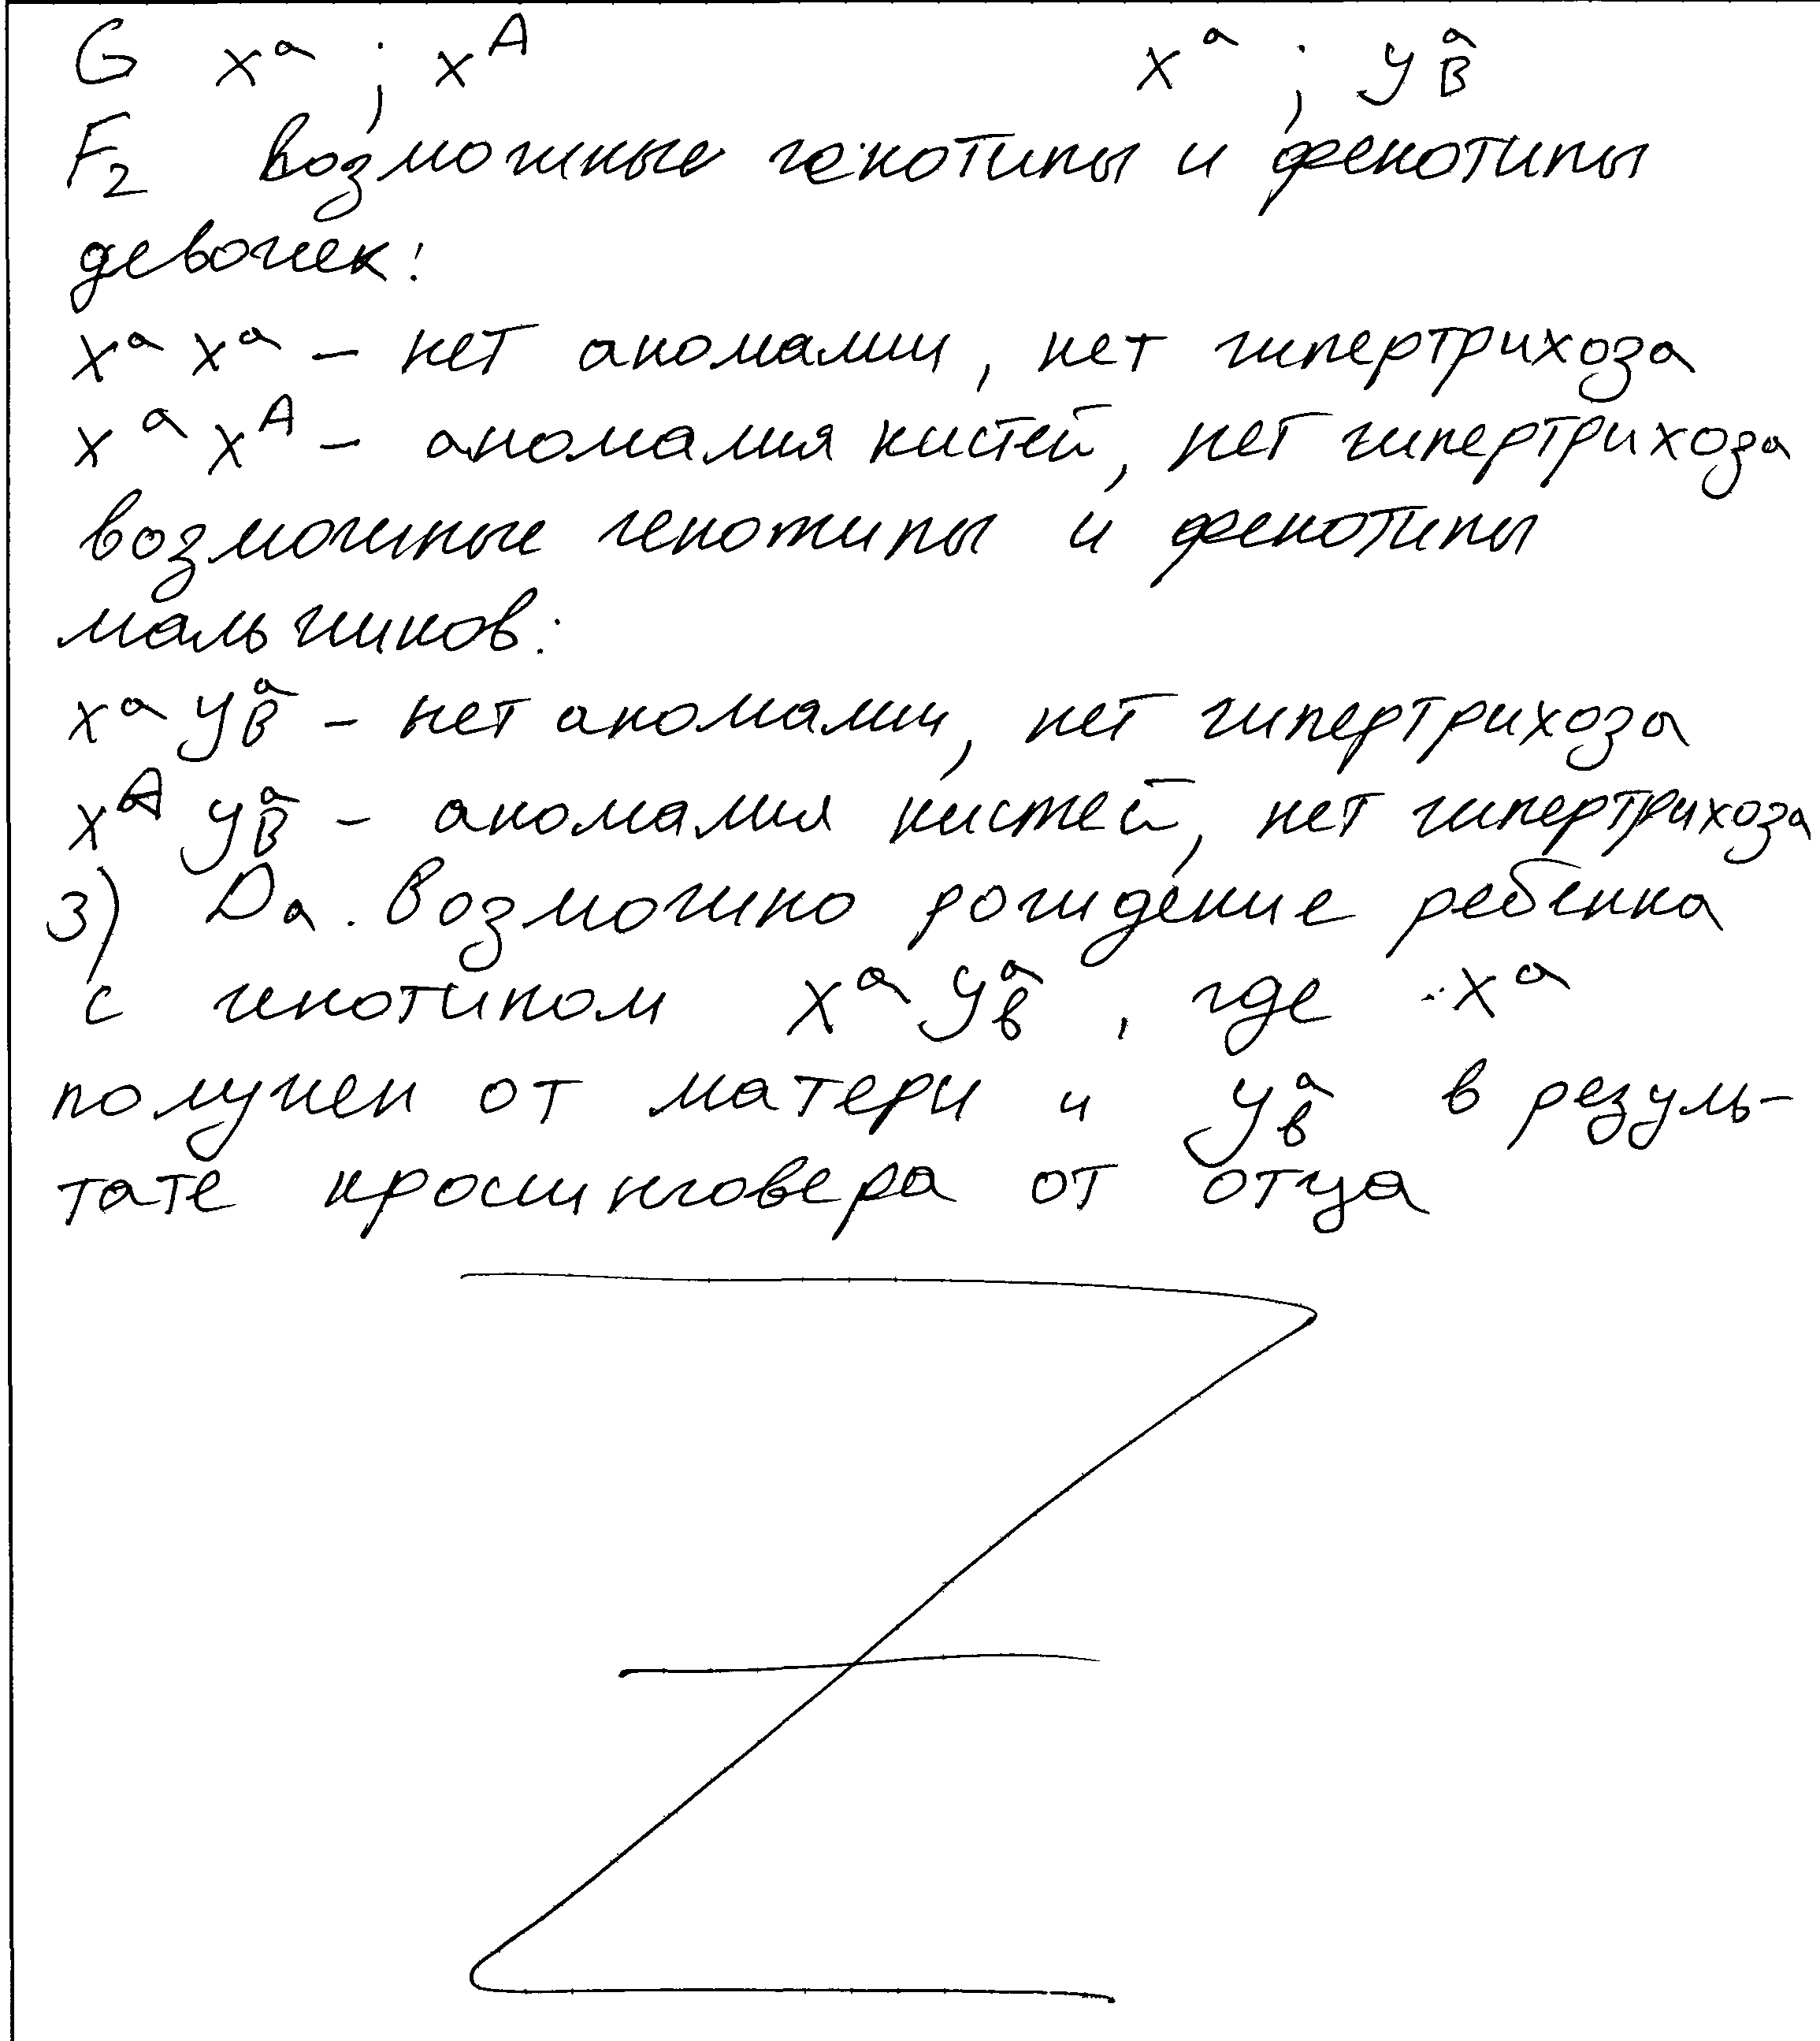 G xᵃ ; xᴬ xᵃ ; yᵃB
F₂ возможные генотипы и фенотипы
девочек:
xᵃ xᵃ – нет аномалии, нет гипертрихоза
xᵃ xᴬ – аномалия кистей, нет гипертрихоза
возможные генотипы и фенотипы
мальчиков:
xᵃ yᵃB – нет аномалии, нет гипертрихоза
xᴬ yᵃB – аномалия кистей, нет гипертрихоза
3) Да. Возможно рождение ребенка
с генотипом xᵃ yᵃв, где xᵃ
получен от матери и yᵃв в резуль-
тате кроссинговера от отца